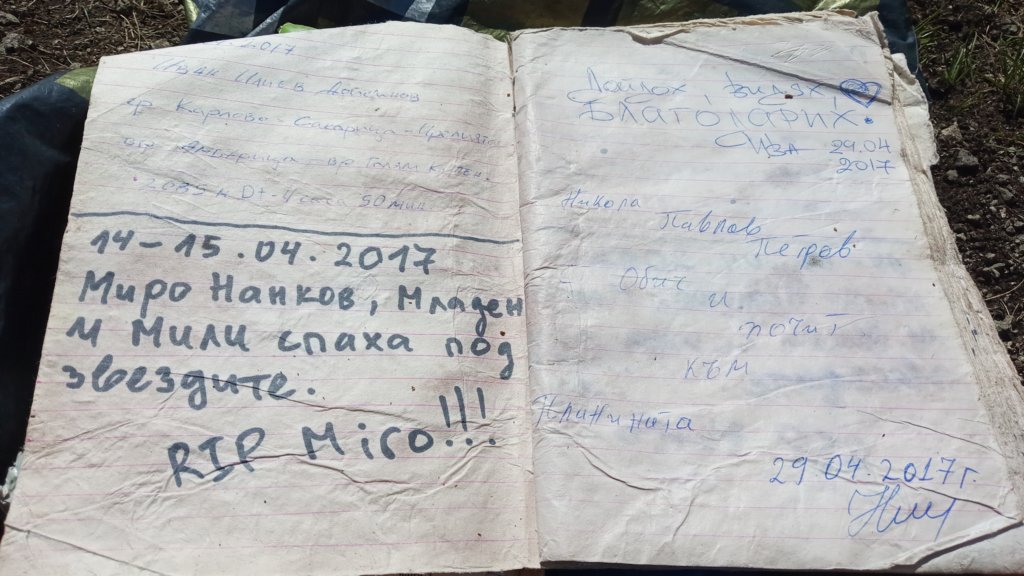 2017
Иван Илиев
гр Карлово - Сакарица -
Амбарица - вр Голям Купен
D+ - 4 часа 50 мин
14-15.04.2017
Миро Нанков, Младен
и Мили спаха под
звездите.
RIP Miro!!!
Дойдох, видях,
Благодарих.
Иза 29.04
2017
Никола
Павлов
Петров
Обич
и
почит
към
29.04.2017г.